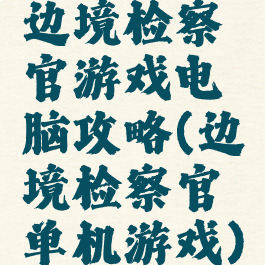 边境检察
官游戏电
脑攻略(边
境检察官
单机游戏)